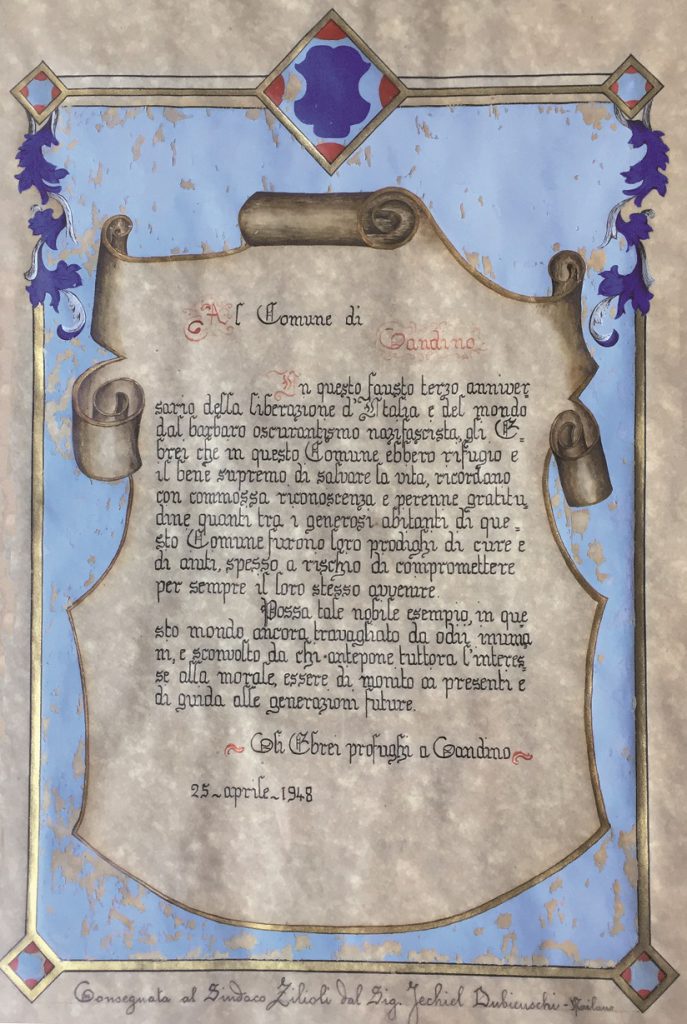 Al Comune di
Gandino
In questo fausto terzo anniver
sario della liberazione d'Italia e del mondo
dal barbaro oscurantismo nazifascista, gli E-
brei che in questo Comune ebbero rifugio e
il bene supremo di salvare la vita, ricordano
con commossa riconoscenza e perenne gratitu-
dine quanti tra i generosi abitanti di que-
sto Comune furono loro prodighi di cure e
di aiuti, spesso a rischio di compromettere
per sempre il loro stesso avvenire.
Possa tale nobile esempio, in que-
sto mondo ancora travagliato da odii inuma-
ni, e sconvolto da chi antepone tuttora l'interes-
se alla morale, essere di monito ai presenti e
di guida alle generazioni future.
~ Gli Ebrei profughi a Gandino ~
25 ~ aprile ~ 1948
Consegnata al Sindaco Zilioli dal Sig. Jechiel Dubicuschi - Milano